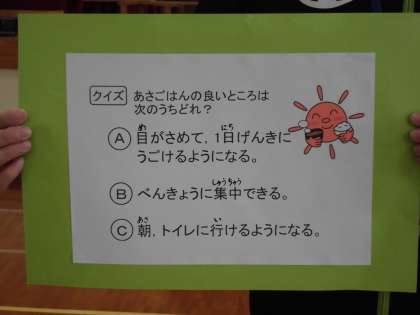 クイズ あさごはんの良いところは
次のうちどれ?
Ⓐ 目がさめて,1日げんきに
うごけるようになる。
Ⓑ べんきょうに集中できる。
Ⓒ 朝,トイレに行けるようになる。